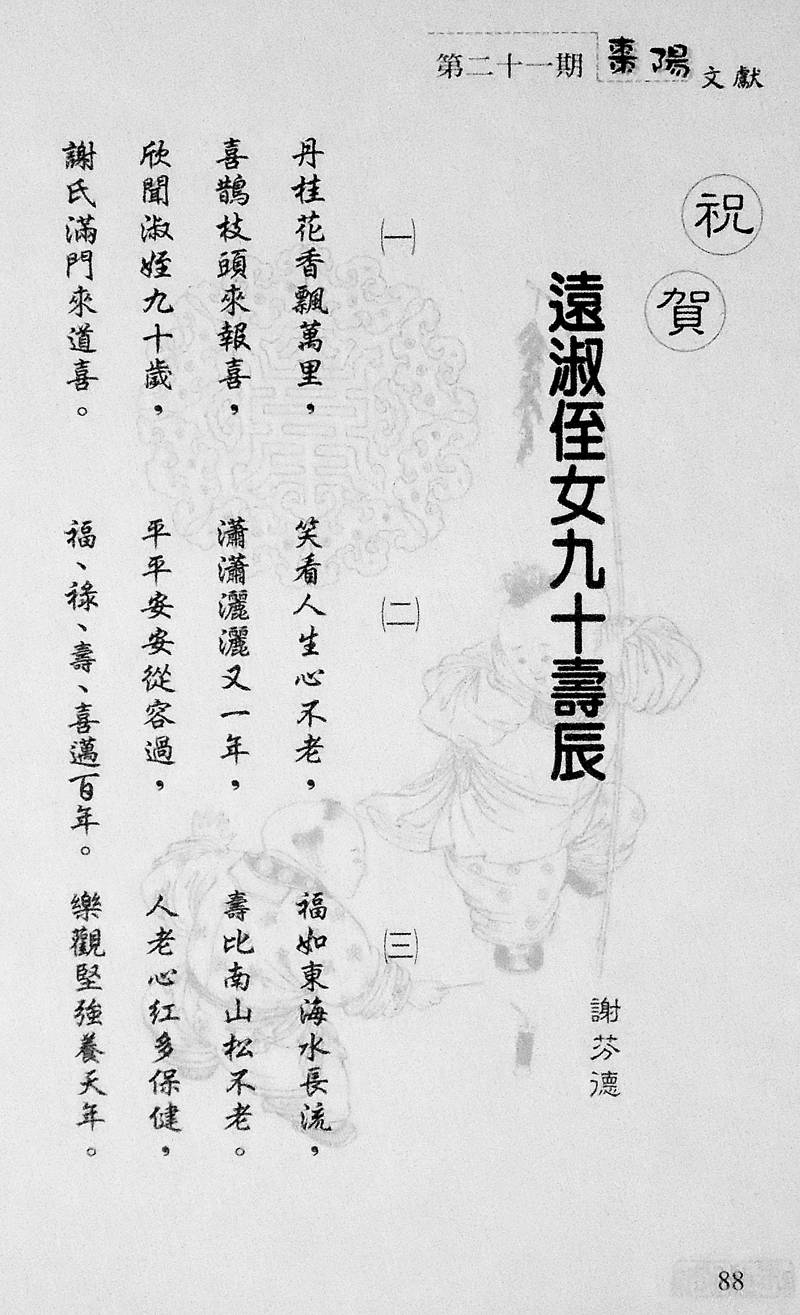 第二十一期 棗陽文獻
祝賀
遠淑侄女九十壽辰
謝芬德
(一)
丹桂花香飄萬里，
喜鵲枝頭來報喜，
欣聞淑姪九十歲，
謝氏滿門來道喜。
(二)
笑看人生心不老，
瀟瀟灑灑又一年，
平平安安從容過，
福、祿、壽、喜邁百年。
(三)
福如東海水長流，
壽比南山松不老。
人老心紅多保健，
樂觀堅強養天年。
88